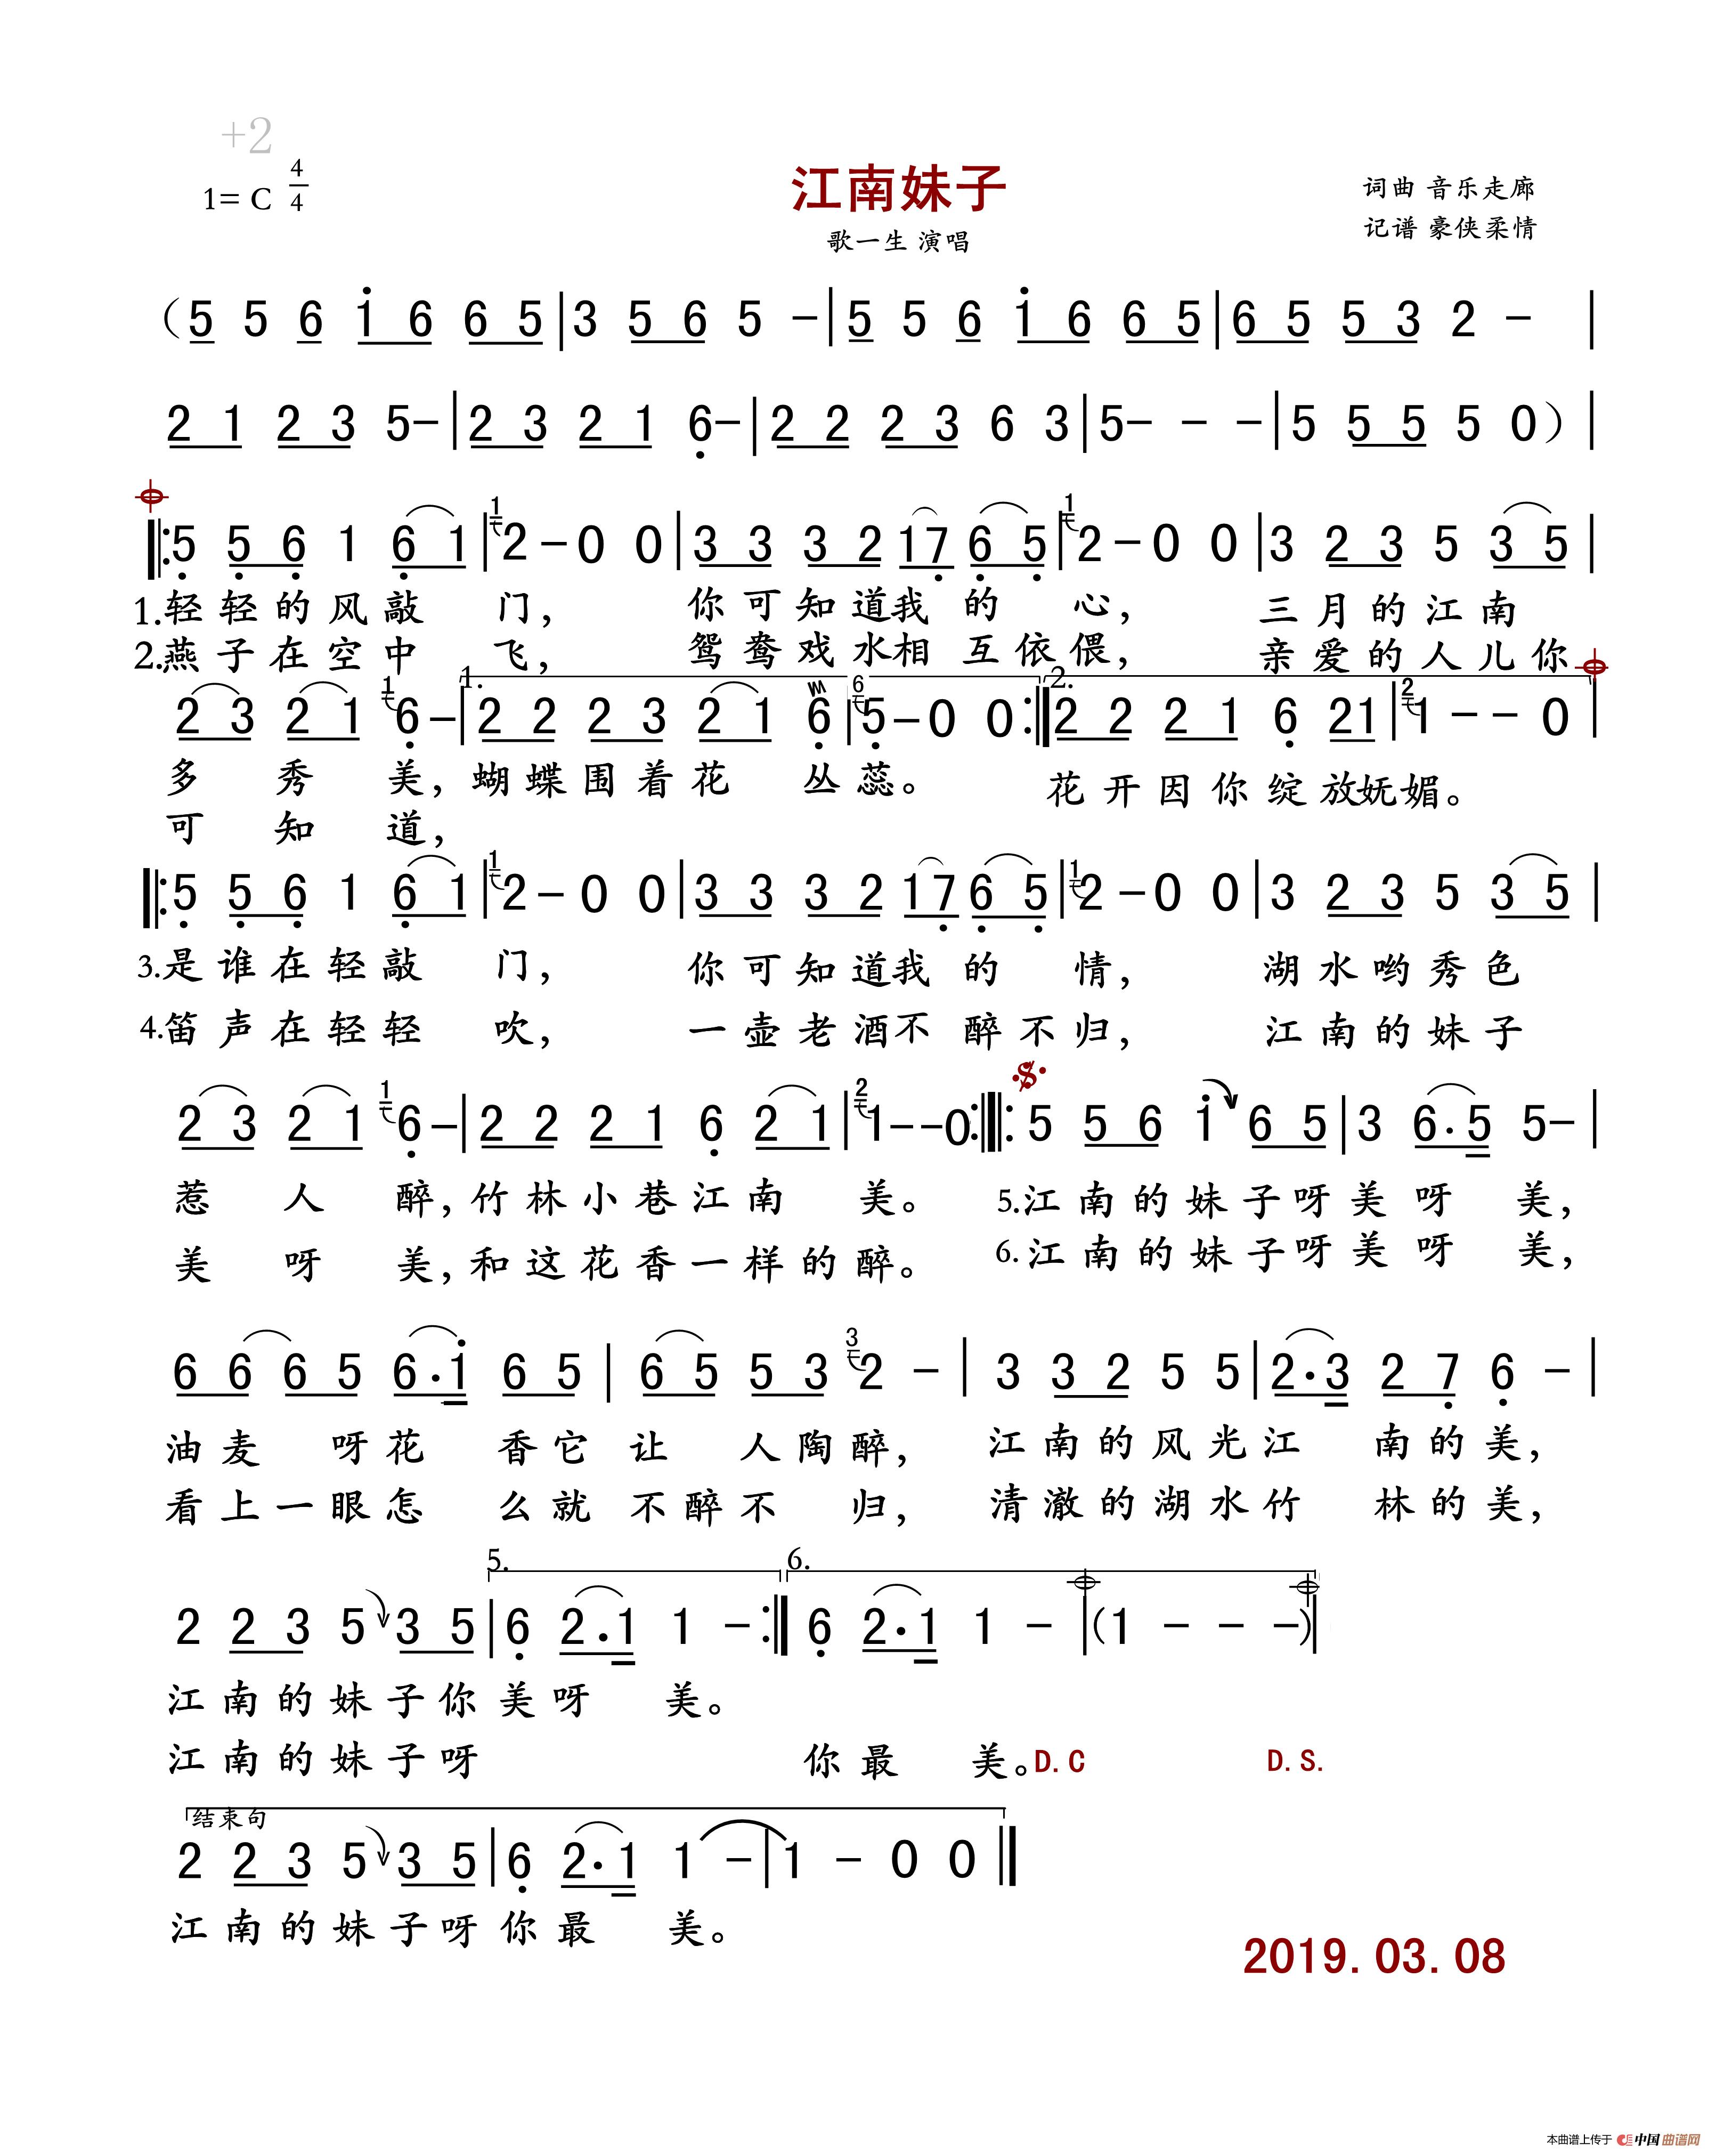 +2
1= C 4/4
江南妹子
词曲 音乐走廊
歌一生 演唱
记谱 豪侠柔情
（5 5 6 i 6 6 5|3 5 6 5 －|5 5 6 i 6 6 5|6 5 5 3 2 －|
2 1 2 3 5－|2 3 2 1 6－|2 2 2 3 6 3|5－ － －|5 5 5 5 0）|
5 5 6 1 6 1|1 2－0 0|3 3 3 2 1 7 6 5|1 2－0 0|3 2 3 5 3 5|
1.轻轻的风敲 门， 你可知道我 的 心， 三月的江南
2.燕子在空中 飞， 鸳鸯戏水相 互依偎， 亲爱的人儿你
1. 2.
2 3 2 1 1 6－|2 2 2 3 2 1 6|6 5－0 0:|2 2 2 1 6 21|2 1－－0|
多 秀 美，蝴蝶围着花 丛蕊。 花开因你绽放妩媚。
可 知 道，
5 5 6 1 6 1|1 2－0 0|3 3 3 2 1 7 6 5|1 2－0 0|3 2 3 5 3 5|
3.是谁在轻敲 门， 你可知道我 的 情， 湖水哟秀色
4.笛声在轻轻 吹， 一壶老酒不 醉不归， 江南的妹子
2 3 2 1 1 6－|2 2 2 1 6 2 1|2 1－－0:||:5 5 6 i 6 5|3 6·5 5－|
惹 人 醉，竹林小巷江南 美。 5.江南的妹子呀美呀 美，
美 呀 美，和这花香一样的醉。 6.江南的妹子呀美呀 美，
6 6 6 5 6·i 6 5|6 5 5 3 3 2 －|3 3 2 5 5|2·3 2 7 6 －|
油麦 呀花 香它让 人陶醉， 江南的风光江 南的美，
看上一眼怎 么就不醉不 归， 清澈的湖水竹 林的美，
5. 6.
2 2 3 5 3 5|6 2·1 1 －:|6 2·1 1 －|(1 － － －)|
江南的妹子你美呀 美。
江南的妹子呀 你最 美。D.C D.S.
结束句
2 2 3 5 3 5|6 2·1 1 －|1 － 0 0
江南的妹子呀你最 美。
2019.03.08
本曲谱上传于 中国曲谱网